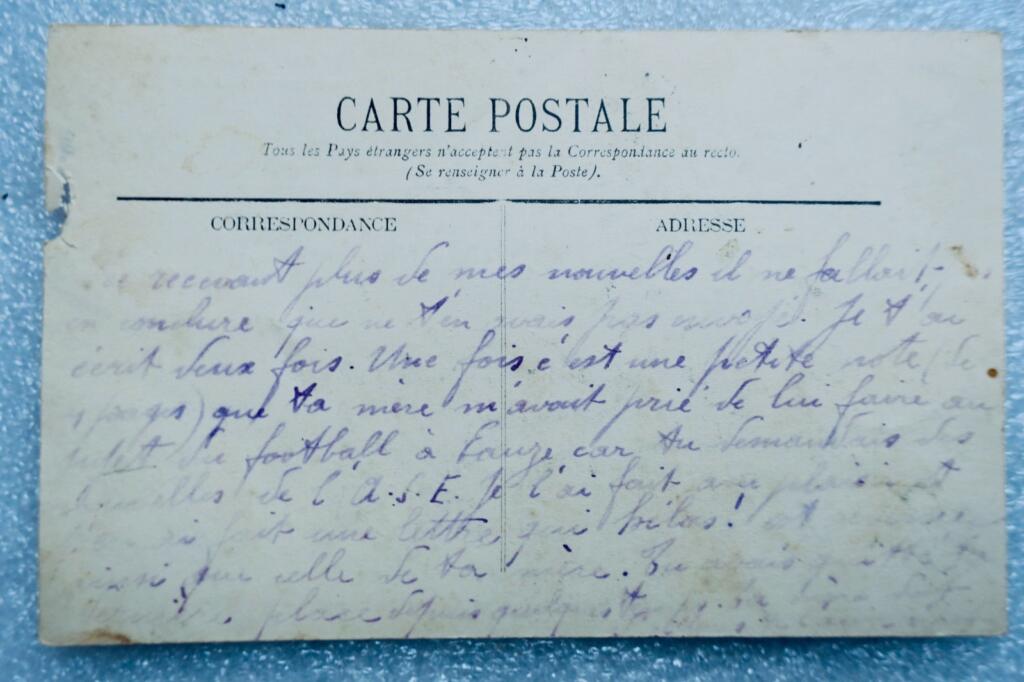 CARTE POSTALE
Tous les Pays étrangers n'acceptent pas la Correspondance au recto.
(Se renseigner à la Poste).
CORRESPONDANCE
ADRESSE
recevant plus de mes nouvelles il ne fallait
en conclure que ne t'en avais pas envoyé. Je t'ai
écrit deux fois. Une fois c'est une petite note (de
4 pages) que ta mère m'avait prié de lui faire au
sujet du football à Eauze car tu demandais des
nouvelles de l'A.S.E. Je l'ai fait avec plaisir et
t'en ai fait une lettre qui hélas! est
ainsi que celle de ta mère. Tu avais quitté
place depuis quelque